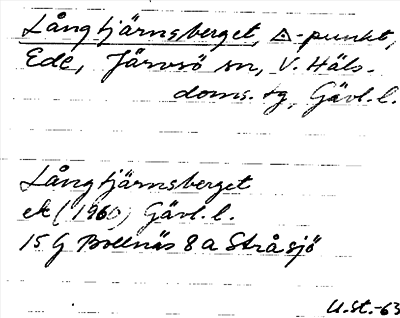 Långtjärnsberget, △-punkt,
Ede, Järvsö sn, V. Häls.
doms. tg, Gävl. l.
Långtjärnsberget
ek (1960) Gävl. l.
15 G Bollnäs 8 a Stråsjö
U.st.-63